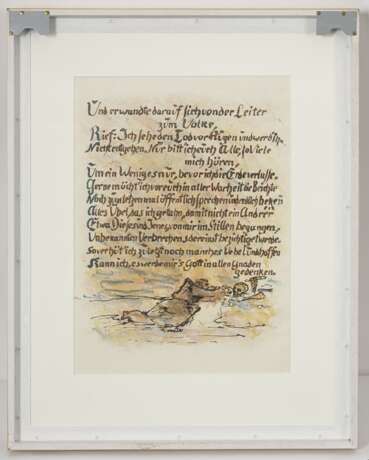 Und er wandte darauf sich von der Leiter
zum Volke,
Rief: Ich sehe den Tod vor Augen und werd ihm
Nicht entgehen. Nur bitt ich euch Alle, so viele
mich hören,
Um ein Weniges nur, bevor ich die Erde verlasse.
Gerne möcht ich vor euch in aller Warheit die Beichte
Noch zu guter letzt öffentlich sprechen und redlich bekennen
Alles Übel, das ich getan, damit nicht ein Andrer
Etwa Dieses und Jenes, von mir im Stillen begangnen,
Unbekannten Verbrechens, dereinst bezichtiget werde.
So verhüt ich zuletzt noch manches Uebel, und hoffen
Kann ich, es werde mir's Gott in allen Gnaden
gedenken.